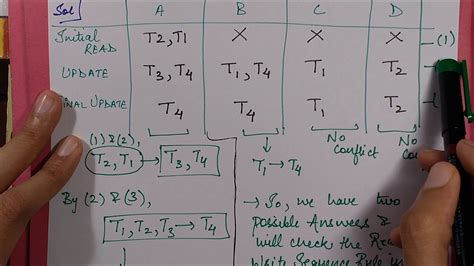 Sol
A B C D
Initial READ T2, T1 X X X —(1)
UPDATE T3, T4 T1, T4 T1 T2
FINAL UPDATE T4 T4 T1 T2
(1) & (2),
T2, T1 → T3, T4
T1 → T4
No Conflict
No
By (2) & (3),
T1, T2, T3 → T4
→ So, we have two
possible Answers &
will check the
Write Sequence Rule in